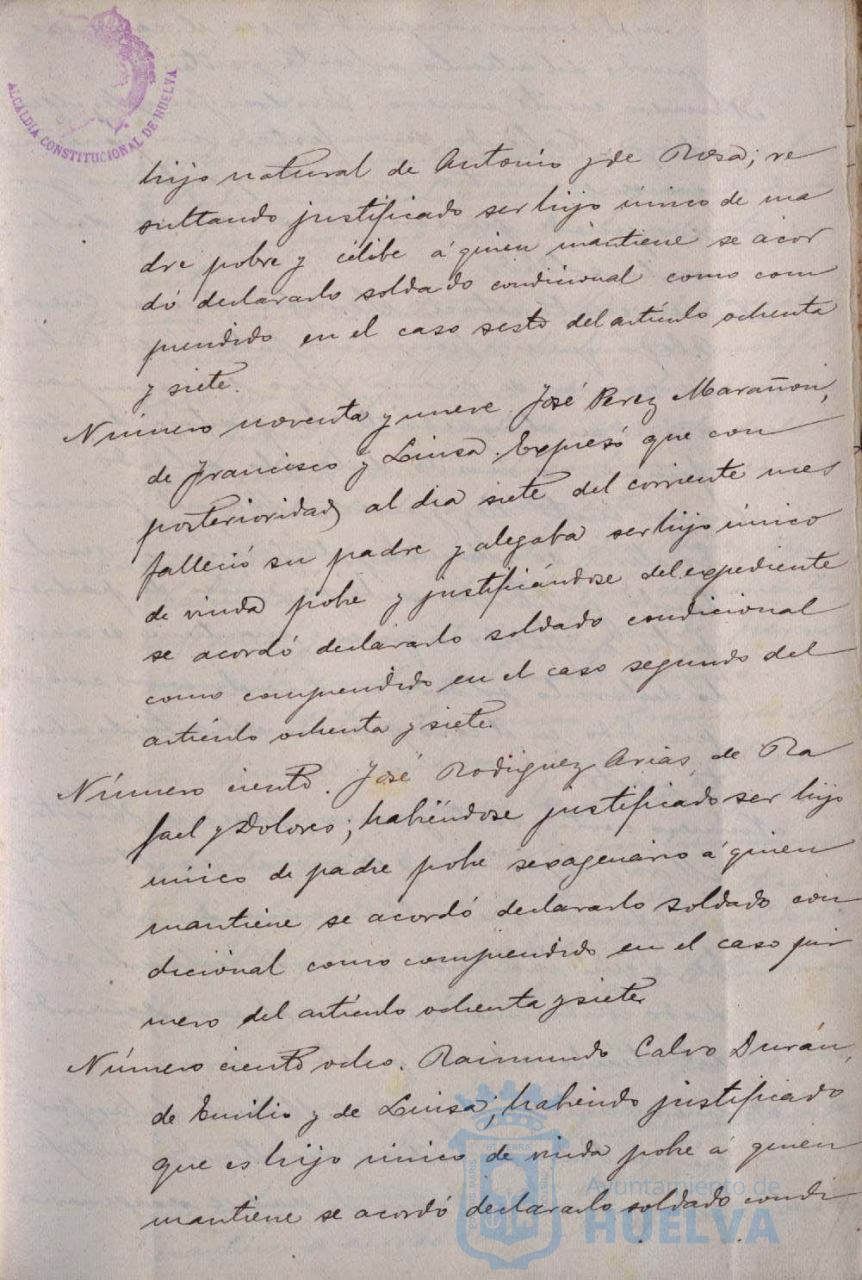 ALCALDÍA CONSTITUCIONAL DE HUELVA
hijo natural de Antonio y de Rosa; re
sultando justificado ser hijo único de ma
dre pobre y célibe á quien mantiene se acor
dó declararlo soldado condicional como com
prendido en el caso sesto del artículo ochenta
y siete.
Número noventa y nueve. José Perez Marañon,
de Francisco y Luisa. Expresó que con
posterioridad al dia siete del corriente mes
falleció su padre y alegaba ser hijo único
de viuda pobre y justificándose del expediente
se acordó declararlo soldado condicional
como comprendido en el caso segundo del
artículo ochenta y siete.
Número ciento. José Rodriguez Arias, de Ra
fael y Dolores; habiéndose justificado ser hijo
único de padre pobre sexagenario á quien
mantiene se acordó declararlo soldado con
dicional como comprendido en el caso pri
mero del artículo ochenta y siete
Número ciento ocho. Raimundo Calvo Durán,
de Emilio y de Luisa; habiendo justificado
que es hijo único de viuda pobre á quien
mantiene se acordó declararlo soldado condi
Ayuntamiento de
HUELVA